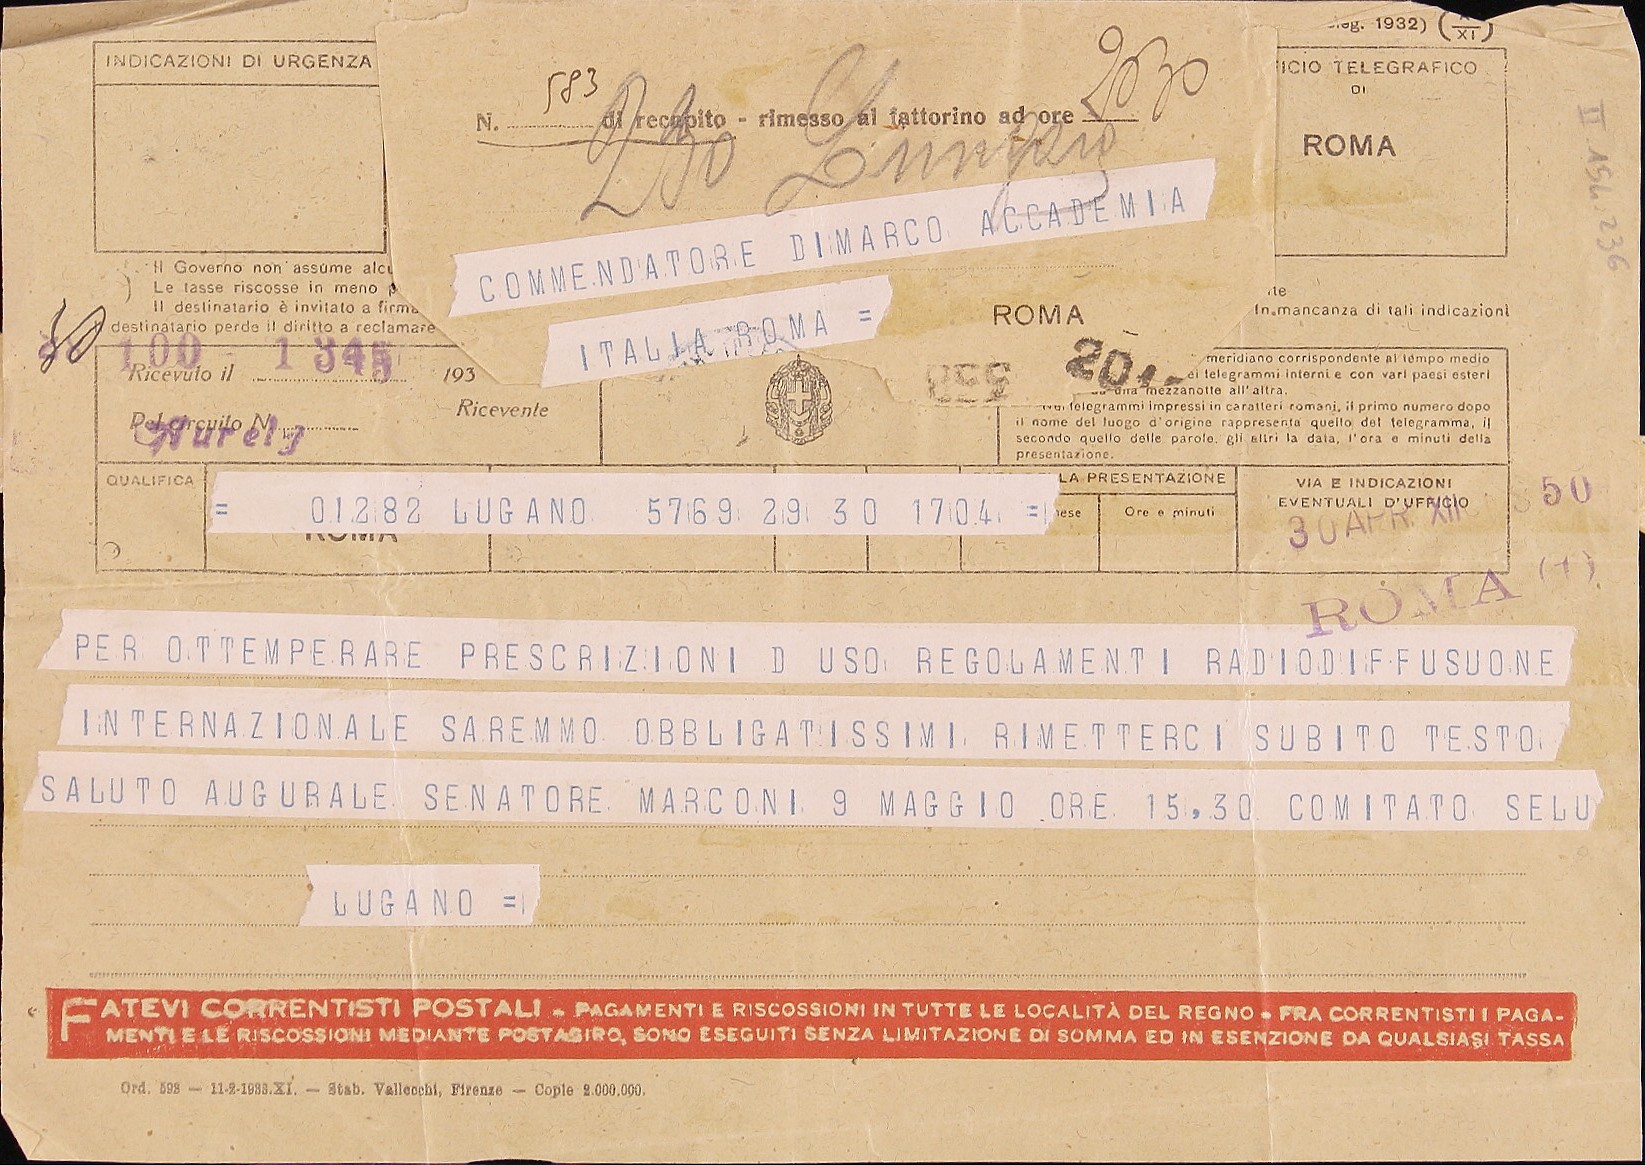 eg. 1932) (XI)
INDICAZIONI DI URGENZA
ICIO TELEGRAFICO
DI
ROMA
N. 583 di recapito - rimesso al fattorino ad ore 2030
II 154.236
COMMENDATORE DIMARCO ACCADEMIA
ITALIA ROMA =
Il Governo non assume alcu
Le tasse riscosse in meno p
Il destinatario è invitato a firma
destinatario perde il diritto a reclamare
ROMA
te
In mancanza di tali indicazioni
100 1345
Ricevuto il 193
Ricevente
Del circuito N.
20
meridiano corrispondente al tempo medio
ei telegrammi interni e con vari paesi esteri
da una mezzanotte all'altra.
Nei telegrammi impressi in caratteri romani, il primo numero dopo
il nome del luogo d'origine rappresenta quello del telegramma, il
secondo quello delle parole, gli altri la data, l'ora e minuti della
presentazione.
QUALIFICA
LA PRESENTAZIONE
VIA E INDICAZIONI
EVENTUALI D'UFFICIO
= 01282 LUGANO 5769 29 30 1704 =
mese
Ore e minuti
ROMA
30 APR. XII
50
ROMA (1)
PER OTTEMPERARE PRESCRIZIONI D USO REGOLAMENTI RADIODIFFUSUONE
INTERNAZIONALE SAREMMO OBBLIGATISSIMI RIMETTERCI SUBITO TESTO
SALUTO AUGURALE SENATORE MARCONI 9 MAGGIO ORE 15,30 COMITATO SELU
LUGANO =
FATEVI CORRENTISTI POSTALI - PAGAMENTI E RISCOSSIONI IN TUTTE LE LOCALITÀ DEL REGNO - FRA CORRENTISTI I PAGA-
MENTI E LE RISCOSSIONI MEDIANTE POSTAGIRO, SONO ESEGUITI SENZA LIMITAZIONE DI SOMMA ED IN ESENZIONE DA QUALSIASI TASSA
Ord. 593 — 11-2-1933.XI. — Stab. Vallecchi, Firenze — Copie 2.000.000.